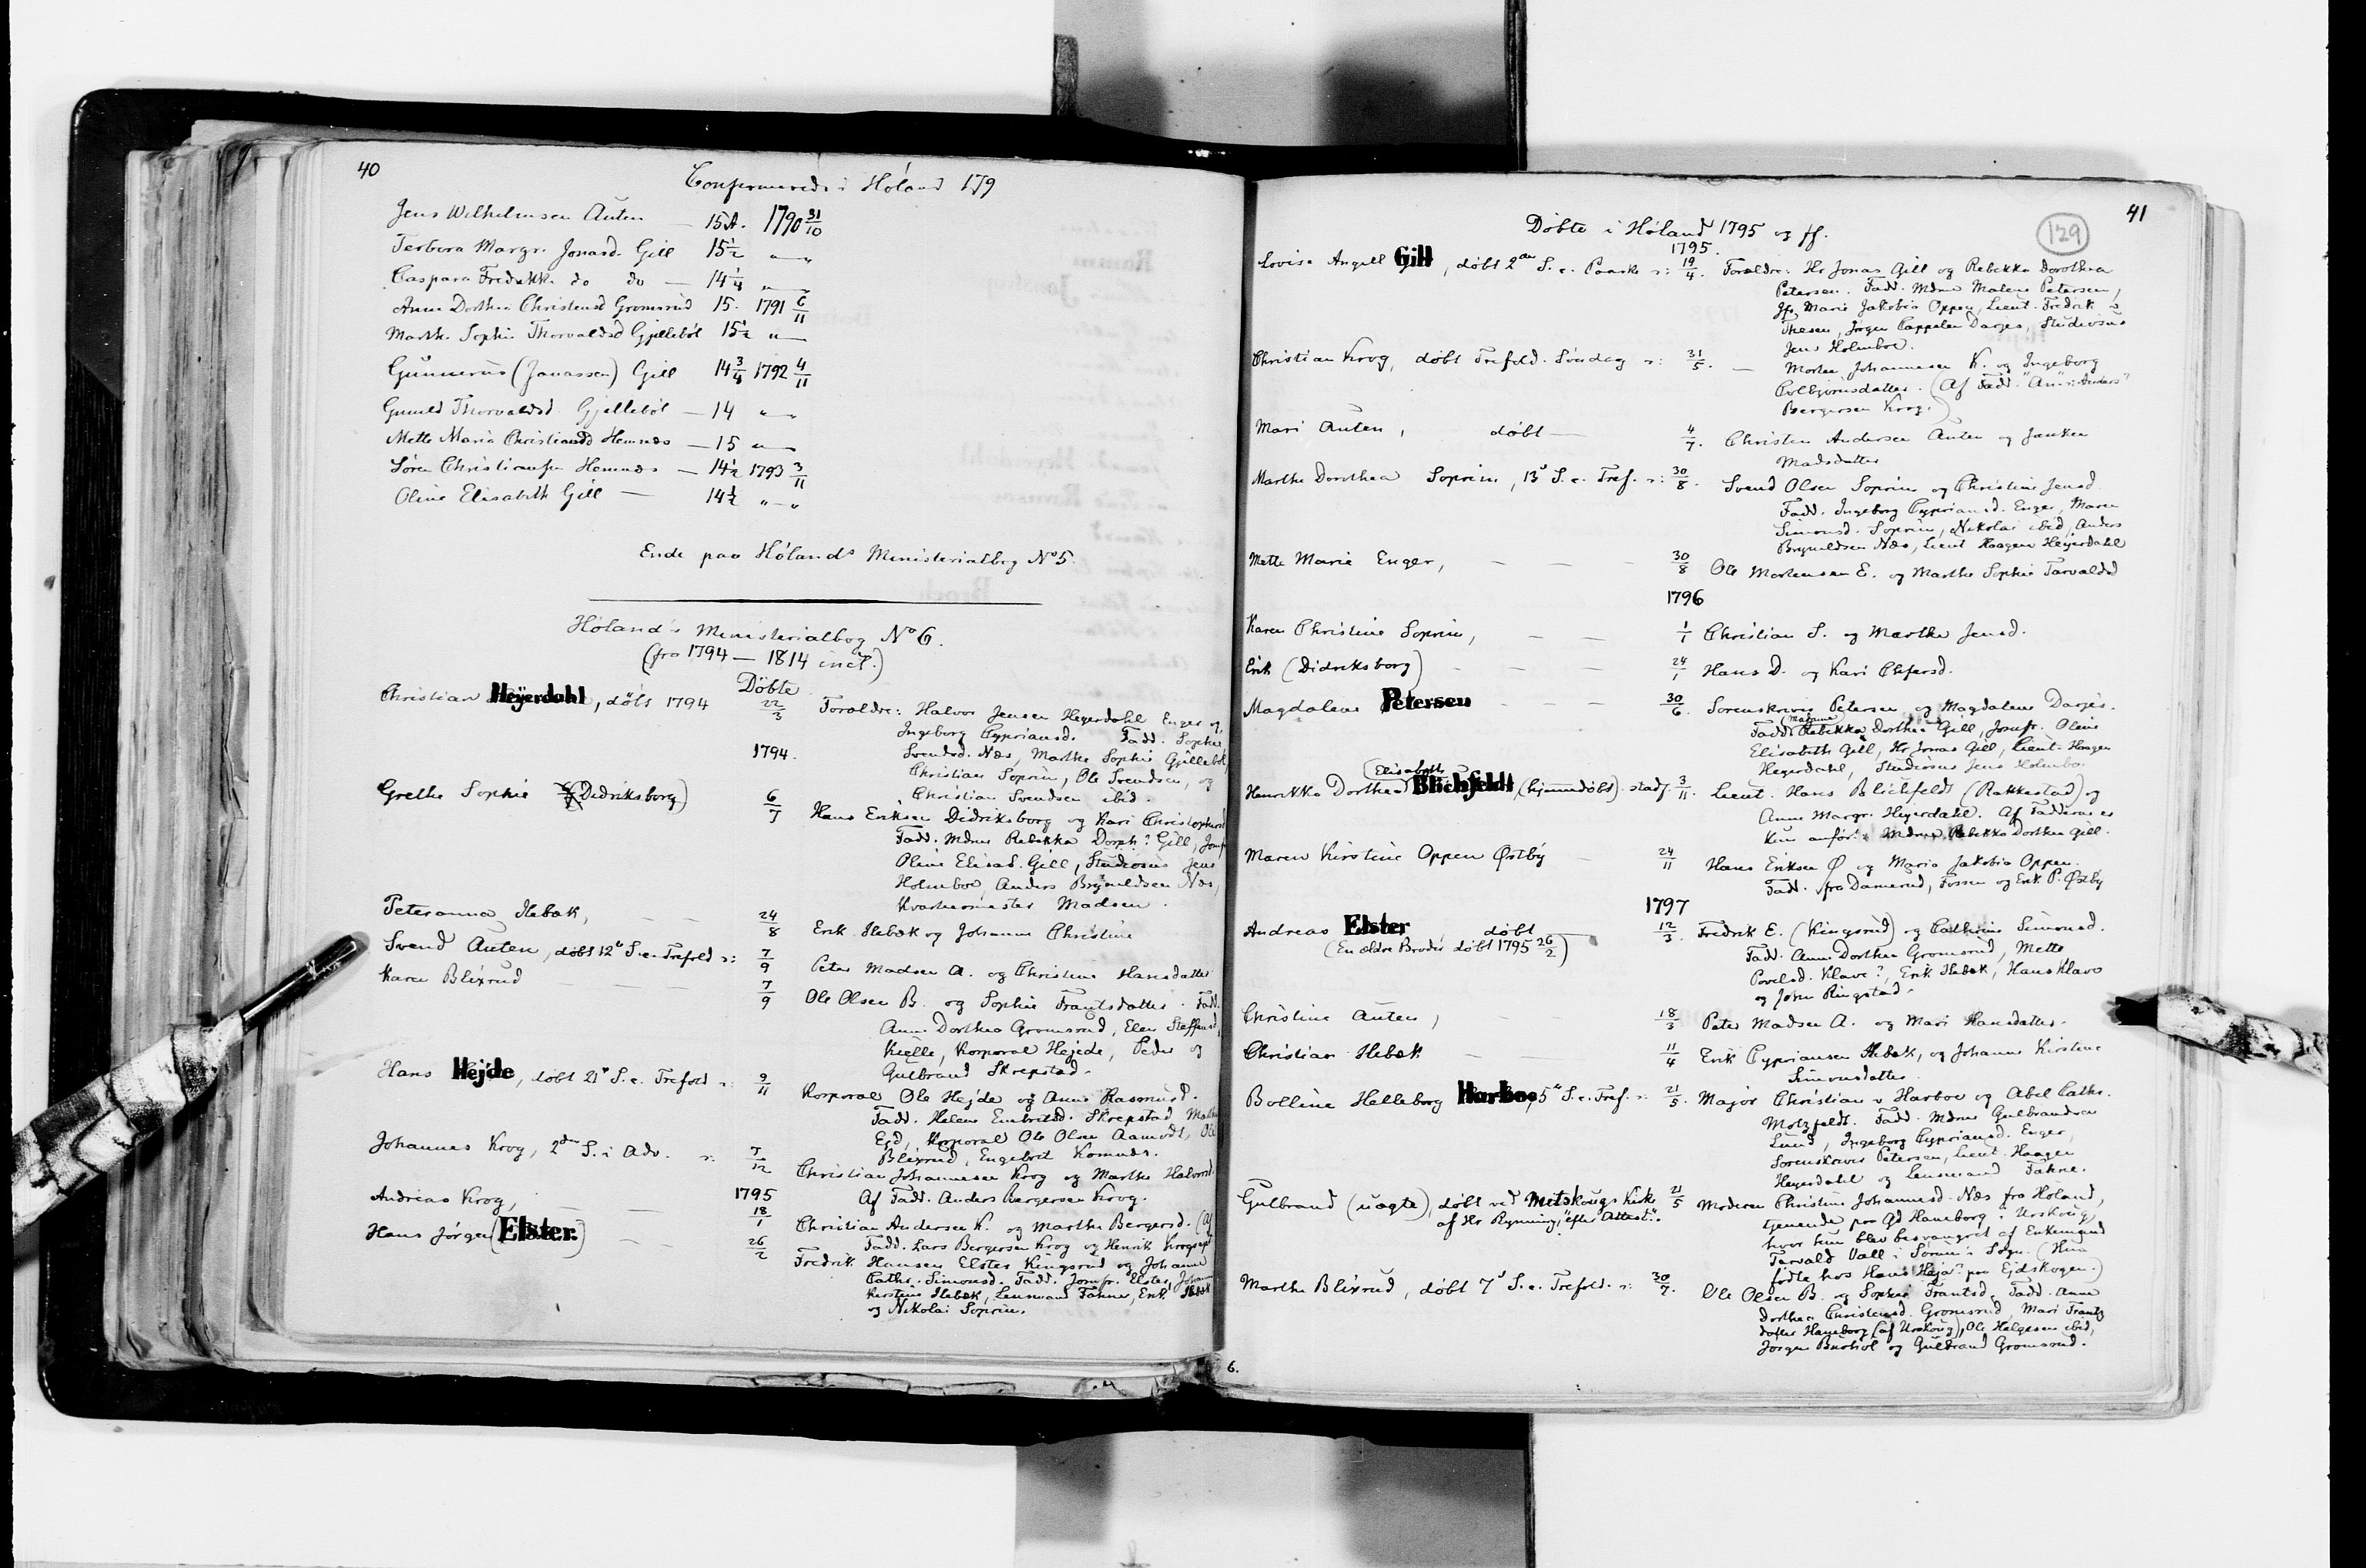 40
Confirmerede i Høland 179
Jens Wilhelmsen Auten — 15 A. 1790 31/10
Terbera Margr. Jonasd. Gill 15 1/2 „—„
Caspara Fredrikke do do — 14 1/4 „—„
Anne Dorthea Christensd Gromsrud 15. 1791 6/11
Marth. Sophie Thorvaldsd Gjellebøl 15 1/2 „—
Gunnerus (Jonassen) Gill 14 3/4 1792 4/11
Gunild Thorvaldsd. Gjellebøl — 14 „—„
Mette Maria Christiansd Hemnæs — 15 „—
Søren Christiansen Hemnæs — 14 1/2 1793 3/11
Oline Elisabeth Gill — 14 1/2 „—„
Ende paa Hølands Ministerialbog No 5.
Høland's Ministerialbog No 6.
(fra 1794 — 1814 incl.)
Døbte
Christian Heyerdahl, døbt 1794 22/3 Forældre: Halvor Jensen Heyerdahl Enger og
Ingeborg Cypriansd. Fadd. Sophie
1794. Svendsd. Næs, Marthe Sophie Gjellebøl,
Christian Soprim, Ole Svendsen, og
Christian Svendsen ibid.
Grethe Sophie (Didriksborg) 6/7 Hans Eriksen Didriksborg og Kari Christophersd
Fadd. Mdme Rebekka Dorth? Gill, Jomfr
Oline Elisab. Gill, Studiosus Jens
Holmboe, Anders Brynildsen Næs,
Kvartermester Madsen.
Peteranna Ilebæk, — — 24/8 Erik Ilebæk og Johanne Christine
Svend Auten, døbt 12te S. e. Trefold ɔ: 7/9 Peter Madsen A. og Christine Hansdatter
Karen Blixrud — — — 7/9 Ole Olsen B. og Sophie Frantsdatter. Fadd.
Anne Dorthea Gromsrud, Elen Steffensd,
Kielle, Korporal Hejede, Peder og
Gulbrand Skrepstad.
Hans Hejde, døbt 21de S. e. Trefold ɔ: 9/11 Korporal Ole Hejde og Anne Rasmusd.
Fadd. Helene Embretsd. Skrepstad, Marthe
Egd, Korporal Ole Olsen Aamodt, Ole
Blixrud, Engebret Komnæs.
Johannes Krog, 2den S. i Adv. ɔ: 7/12 Christian Johannesen Krog og Marthe Halvorsd.
1795 Af Fadd. Anders Bergersen Krog.
Andreas Krog, — — 18/1 Christian Andersen K. og Marthe Bergersd. (Af
Fadd. Lars Bergersen Krog og Henrik Krogsrud
Hans Jørgen (Elster) — — 26/2 Fredrik Hansen Elster Kingsrud og Johanne
Cathr. Simonsd. Fadd. Jomfr. Elster, Johanne
Kirstine Ilebæk, Lensmand Fahne, Erik Ilebæk
og Nikolai Soprim.
41
129
Døbte i Høland 1795 og ff.
1795.
Lovise Angell Gill, døbt 2den S. e. Paaske ɔ: 19/4. Forældre: Hr Jonas Gill og Rebekka Dorothea
Petersen. Fadd. Mdme Malene Petersen,
Jfr. Marie Jakobia Oppen, Lieut. Fredrik v
Thesen, Jørgen Cappelen Darjes, Studiosus
Jens Holmboe.
Christian Krog, døbt Trefold. Søndag ɔ: 31/5. — Morten Johannesen K. og Ingeborg
Colbjørnsdatter. (Af Fadd. "An" ɔ: Anders"
Bergersen Krog.)
Mari Auten, døbt — 4/7. Christen Andersen Auten og Janken
Madsdatter
Marthe Dorothea Soprim, 13de S. e. Tref. ɔ: 30/8. Svend Olsen Soprim og Christine Jensd.
Fadd. Ingeborg Cypriansd. Enger, Maren
Simonsd. Soprim, Nikolai ibid, Anders
Brynildsen Næs, Lieut Haagen Heyerdahl
Mette Marie Enger, — — — 30/8 Ole Mortensen E. og Marthe Sophie Tarvaldsd
1796
Karen Christine Soprim, — — 1/1 Christian S. og Marthe Jensd.
Erik (Didriksborg) — — — 24/1 Hans D. og Kari Chfersd.
Magdalene Petersen — — — 30/6. Sorenskriver Petersen og Magdalene Darjes.
Fadd. (Madame) Rebekka Dorthea Gill, Jomfr. Oline
Elisabeth Gill, Hr Jonas Gill, Lieut. Haagen
Heyerdahl, Studiosus Jens Holmbo.
Henrikke Dorthea (Elisabeth) Blichfeldt, (hjemmedøbt). stadf. 3/11. Lieut. Hans Blichfeldt (Rakkestad) og
Anne Margr. Heyerdahl. Af Fadderne er
kun anført: Mdme Rebekka Dorthea Gill.
Maren Kirstine Oppen Østby — 24/11 Hans Eriksen Ø og Maria Jakobia Oppen.
Fadd. fra Damerud, Fossen og Erik P. Østby
1797
Andreas Elster, døbt 12/3. Fredrik E. (Kingsrud) og Cathrine Simonsd.
(En ældre Broder døbt 1795 26/2) Fadd. Anne Dorthea Gromsrud, Mette
Povelsd. Klave?, Erik Ilebæk, Hans Klave
og John Ringstad.
Christine Auten, — — 18/3 Peter Madsen A. og Mari Hansdatter.
Christian Ilebæk — 11/4 Erik Cypriansen Ilebæk, og Johanne Kirstine
Simonsdatter.
Bolline Helleborg Harboe, 5te S. e. Tref. ɔ: 21/5. Major Christian v Harboe og Abel Cathr.
Motzfeldt. Fadd. Mdme Gulbrandsen
Lund, Ingeborg Cypriansd. Enger,
Sorenskriver Petersen, Lieut. Haagen
Heyerdahl og Lensmand Fahne.
Gulbrand (uægte), døbt ved Mitskougs Kirke 21/5 Moderen Christine Johannesd. Næs fra Høland,
af Hr Rynning, "efter Attest". tjenende paa Gd Haneborg i Urskoug,
hvor hun blev besvangret af Enkemand
Tarvald Vall i Sørum's Sogn. (Hun
fødte hos Hans Heja? paa Ejdskogen.)
Marthe Blixrud, døbt 7de S. e. Trefold. ɔ: 30/7. Ole Olsen B. og Sophie Frantsd. Fadd. Anne
Dorthea Christensd. Gromsrud, Mari Frants
datter Haneborg (af Urskoug), Ole Helgesen ibid,
Jørgen Buohol og Gulbrand Gromsrud.
6.